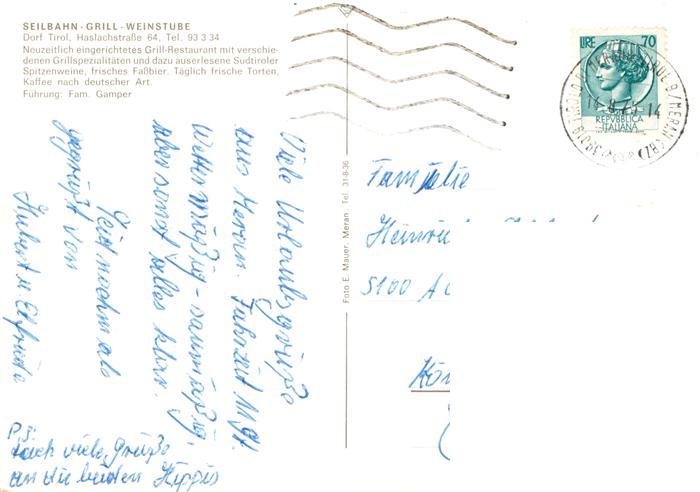 SEILBAHN - GRILL - WEINSTUBE
Dorf Tirol, Haslachstraße 64, Tel. 93 3 34
Neuzeitlich eingerichtetes Grill-Restaurant mit verschie-
denen Grillspezialitäten und dazu auserlesene Südtiroler
Spitzenweine, frisches Faßbier. Täglich frische Torten,
Kaffee nach deutscher Art.
Führung: Fam. Gamper
Viele Urlaubsgrüße
aus Meran. Fahrzeit 11 
Wettermäßig - saumäßig,
aber sonst alles klar.
Seid nochmals
gegrüßt von
Hubert u Elfriede
P.S.
Auch viele Grüße
an die beiden Hippis
Foto E. Mauer, Meran, Tel. 31-8-36
LIRE 70
REPVBBLICA
ITALIANA
Familie
Heinri
5100 A